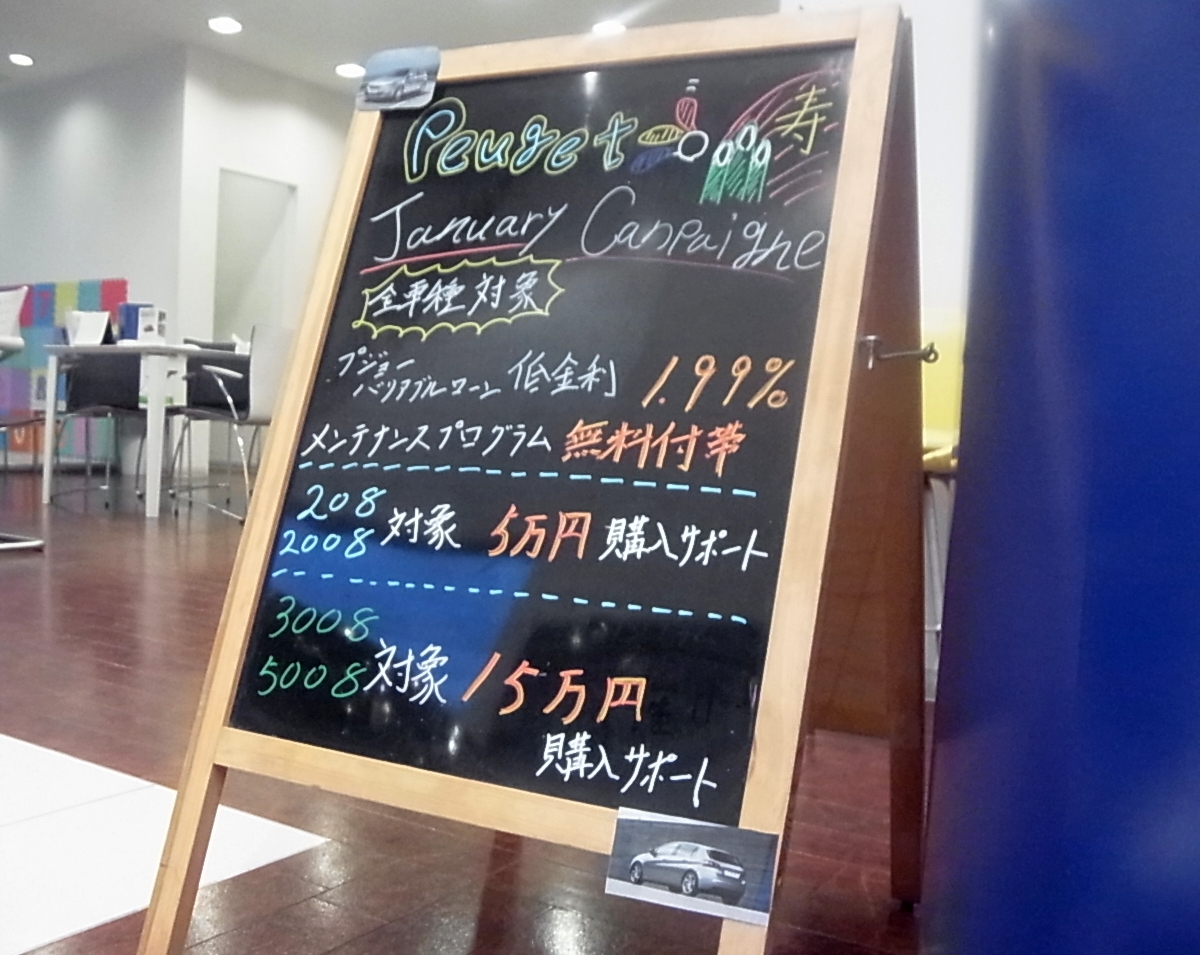 Peuget
寿
January Canpaigne
全車種対象
プジョー
バリアブルローン 低金利 1.99%
メンテナンスプログラム 無料付帯
208
2008 対象 5万円 購入サポート
3008
5008 対象 15万円
購入サポート